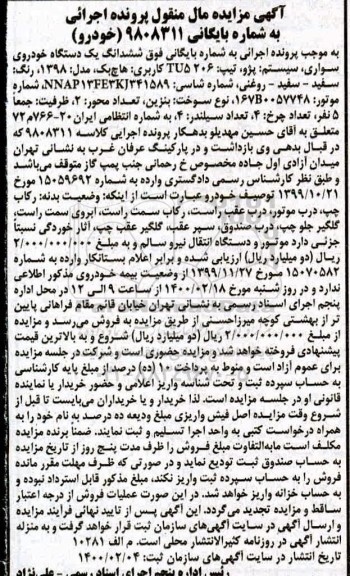 آگهی مزایده مال منقول پرونده اجرائی
به شماره بایگانی ۹۸۰۸۳۱۱ (خودرو)
به موجب پرونده اجرائی به شماره بایگانی فوق ششدانگ یک دستگاه خودروی
سواری، سیستم: پژو، تیپ: TU۵ ۲۰۶ کاربری: هاچ‌بک، مدل: ۱۳۹۸، رنگ:
سفید - سفید - روغنی، شماره شاسی: NNAP۱۳FE۳KJ۳۴۱۵۸۹، شماره
موتور: ۱۶۷B۰۰۵۷۷۴۸، نوع سوخت: بنزین، تعداد محور: ۲، ظرفیت: جمعاً
۵ نفر، تعداد چرخ: ۴، تعداد سیلندر: ۴، به شماره انتظامی ایران ۲۰-۷۲م۷۶۶
متعلق به آقای حسین مهدیلو بدهکار پرونده اجرایی کلاسه ۹۸۰۸۳۱۱ که
در قبال بدهی وی بازداشت و در پارکینگ عرفان غرب به نشانی تهران
میدان آزادی اول جاده مخصوص خ رحمانی جنب پمپ گاز متوقف می‌باشد
و طبق نظر کارشناس رسمی دادگستری وارده به شماره ۱۵۰۵۹۶۹۲ مورخ
۱۳۹۹/۱۰/۲۱ توصیف خودرو عبارت است از اینکه: وضعیت بدنه: رکاب
چپ، درب موتور، درب عقب راست، رکاب سمت راست، ابروی سمت راست،
گلگیر جلو چپ، درب صندوق، سپر عقب، گلگیر عقب چپ، آثار خوردگی نسبتاً
جزئی دارد موتور و دستگاه انتقال نیرو سالم و به مبلغ ۲/۰۰۰/۰۰۰/۰۰۰
ریال (دو میلیارد ریال) ارزیابی شده و برابر اعلام بستانکار وارده به شماره
۱۵۰۷۰۵۸۲ مورخ ۱۳۹۹/۱۱/۲۷ از وضعیت بیمه خودروی مذکور اطلاعی
ندارد و در روز شنبه مورخ ۱۴۰۰/۰۲/۱۸ از ساعت ۹ الی ۱۲ در محل اداره
پنجم اجرای اسناد رسمی به نشانی تهران خیابان قائم مقام فراهانی پایین
تر از بهشتی کوچه میرزاحسنی از طریق مزایده به فروش می‌رسد و مزایده
از مبلغ ۲/۰۰۰/۰۰۰/۰۰۰ ریال (دو میلیارد ریال) شروع و به بالاترین قیمت
پیشنهادی فروخته خواهد شد و مزایده حضوری است و شرکت در جلسه مزایده
برای عموم آزاد است و منوط به پرداخت ۱۰ (ده) درصد از مبلغ پایه کارشناسی
به حساب سپرده ثبت و تحت شناسه واریز اعلامی و حضور خریدار یا نماینده
قانونی او در جلسه مزایده است. لذا خریدار و یا خریداران می‌بایست تا قبل از
شروع وقت مزایده اصل فیش واریزی مبلغ ودیعه ده درصد به نام خود را به
همراه درخواست کتبی به واحد اجرا تسلیم و ثبت نمایند. ضمناً برنده مزایده
مکلف است مابه‌التفاوت مبلغ فروش را ظرف مدت پنج روز از تاریخ مزایده
به حساب صندوق ثبت تودیع نماید و در صورتی که ظرف مهلت مقرر مانده
فروش را به حساب سپرده ثبت واریز نکند، مبلغ مذکور قابل استرداد نبوده و
به حساب خزانه واریز خواهد شد. در این صورت عملیات فروش از درجه اعتبار
ساقط و مزایده تجدید می‌گردد. این آگهی پس از تایید نهائی فرآیند مزایده
و ارسال آگهی در سایت آگهی‌های سازمان ثبت قرار خواهد گرفت و به منزله
انتشار آگهی در روزنامه کثیرالانتشار محلی است. م الف ۱۰۲۸۱
تاریخ انتشار در سایت آگهی‌های سازمان ثبت: ۱۴۰۰/۰۲/۰۴
رئیس اداره پنجم اجرای اسناد رسمی - علی نژاد